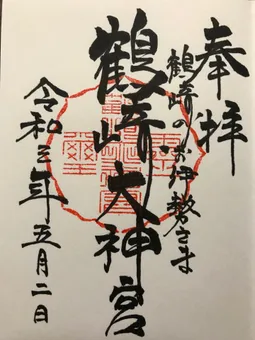 奉拝
鶴崎のお伊勢さま
鶴崎大神宮
令和三年五月二日